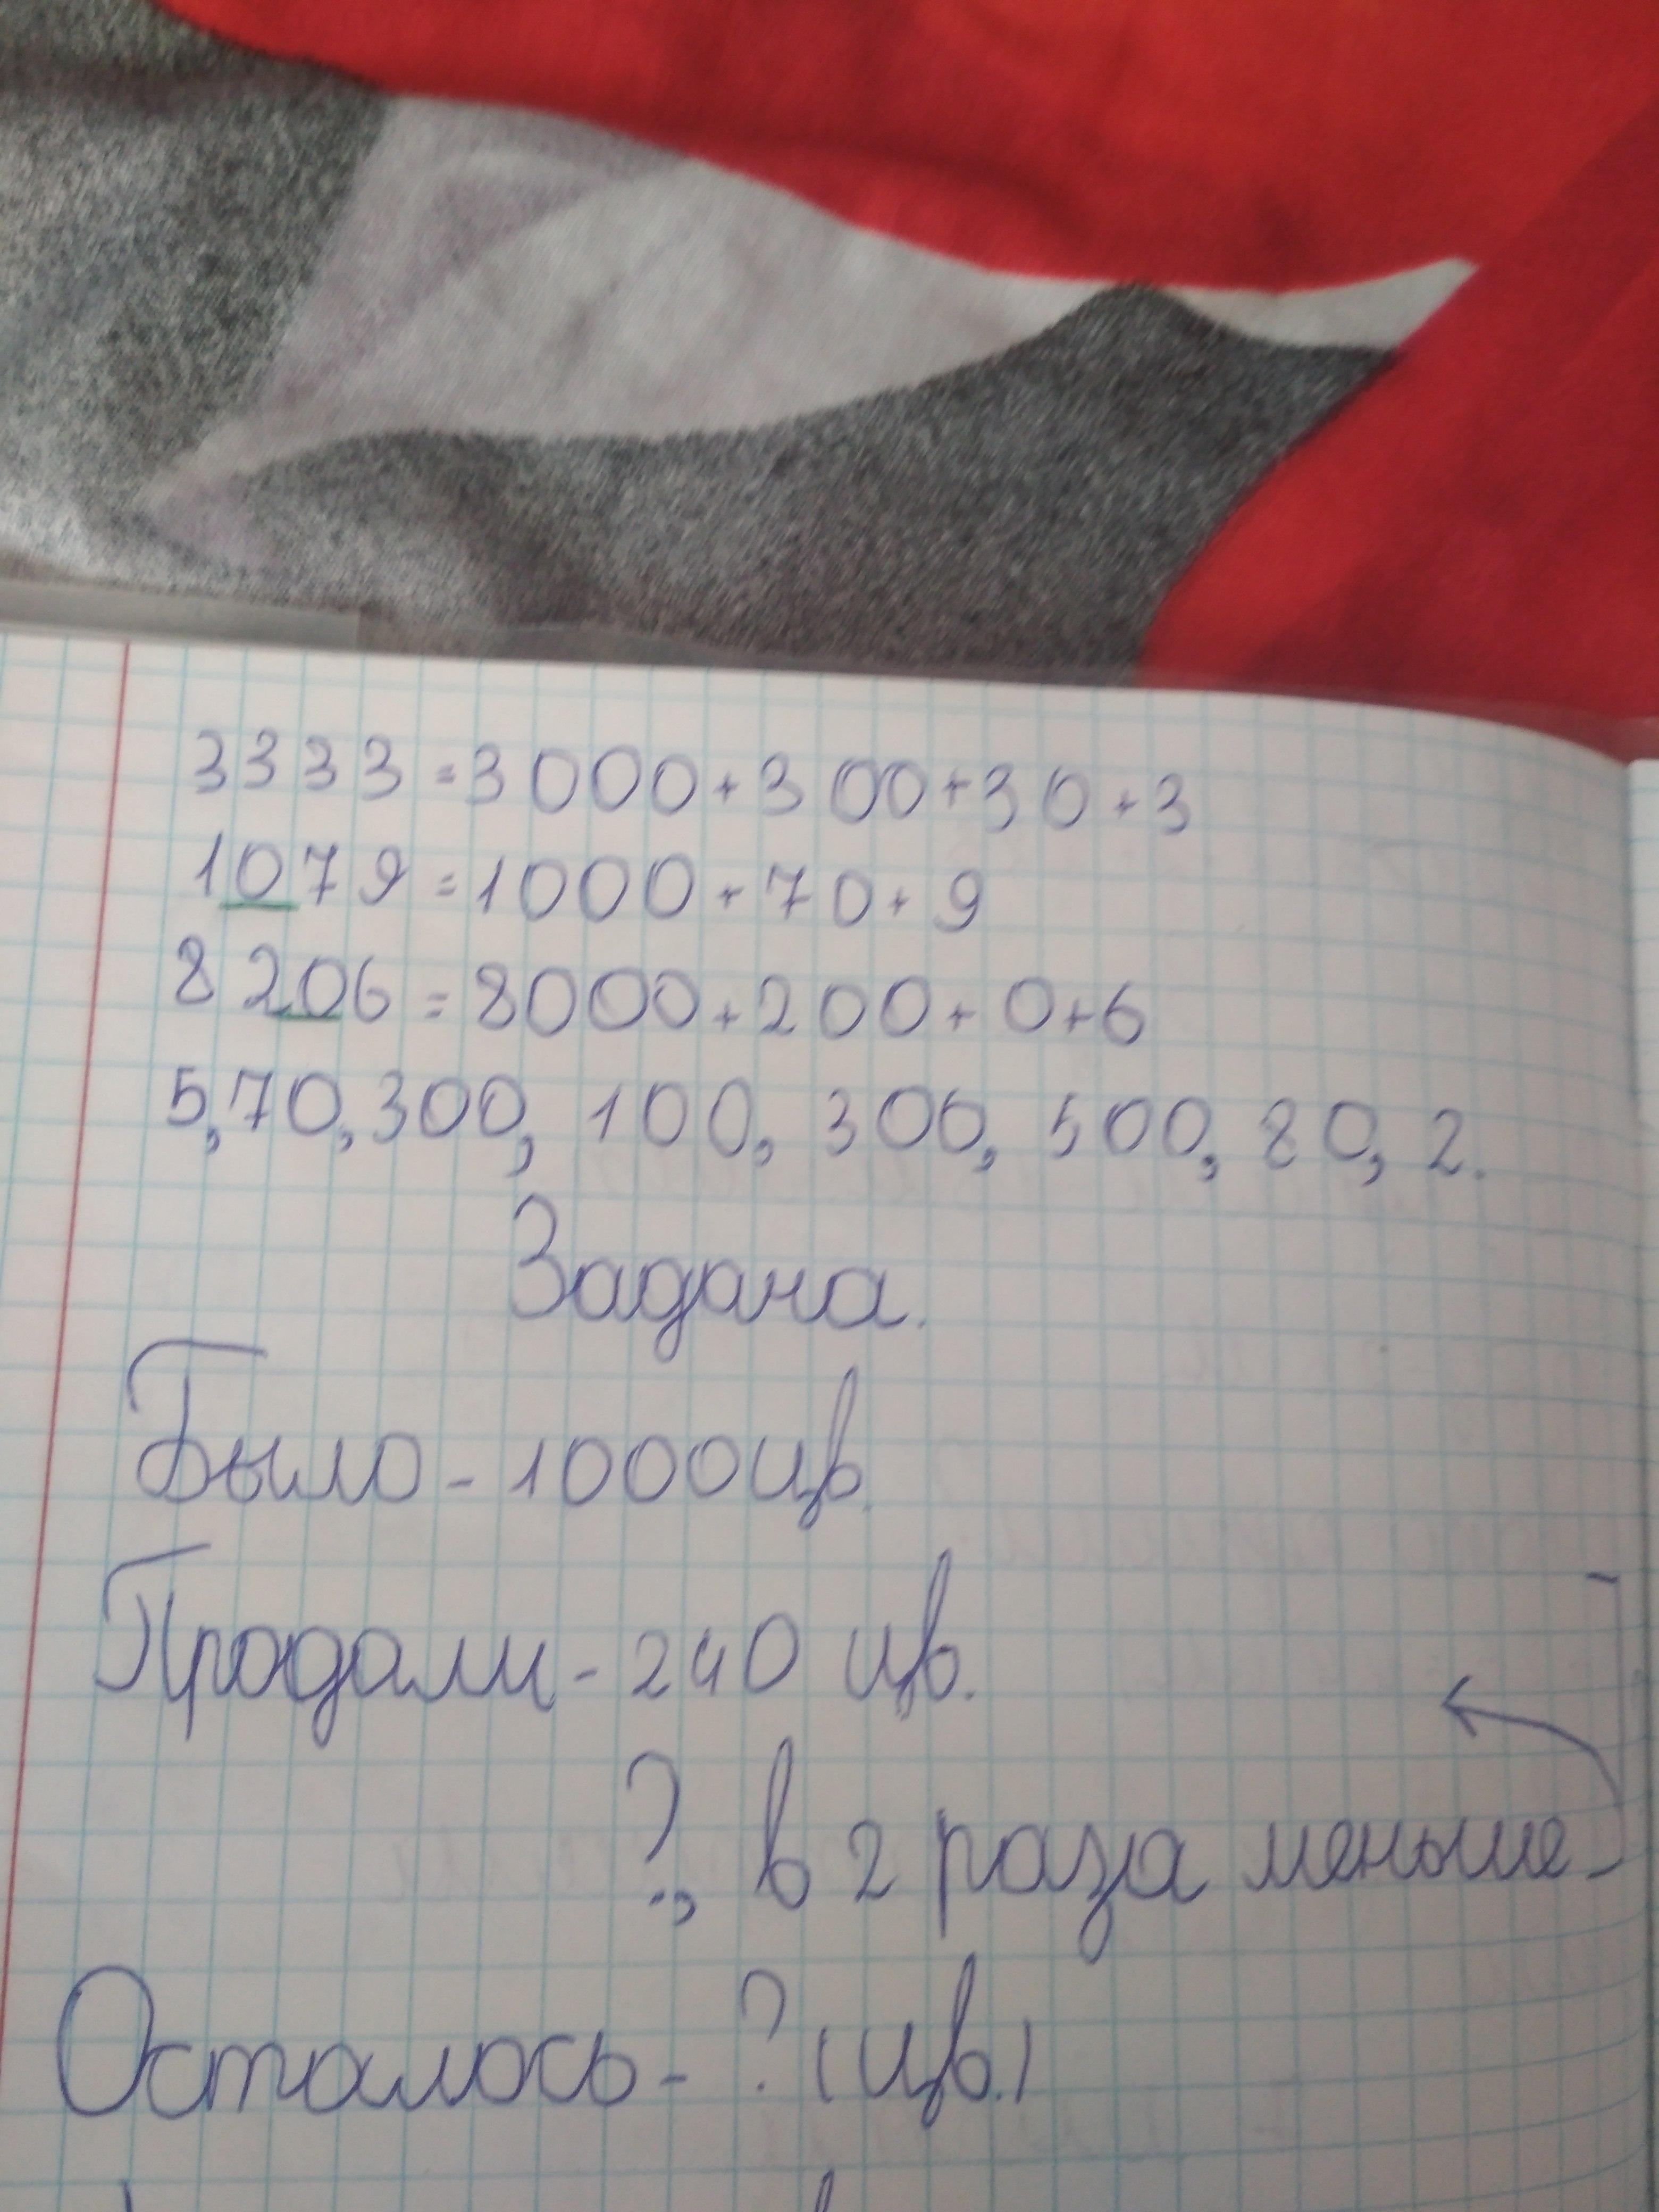 3333=3000+300+30+3
1079=1000+70+9
8206=8000+200+0+6
5,70,300, 100, 300, 500, 80, 2.
Задача.
Было-1000цв.
Продали-240 цв.
?, в 2 раза меньше
Осталось-?(цв.)